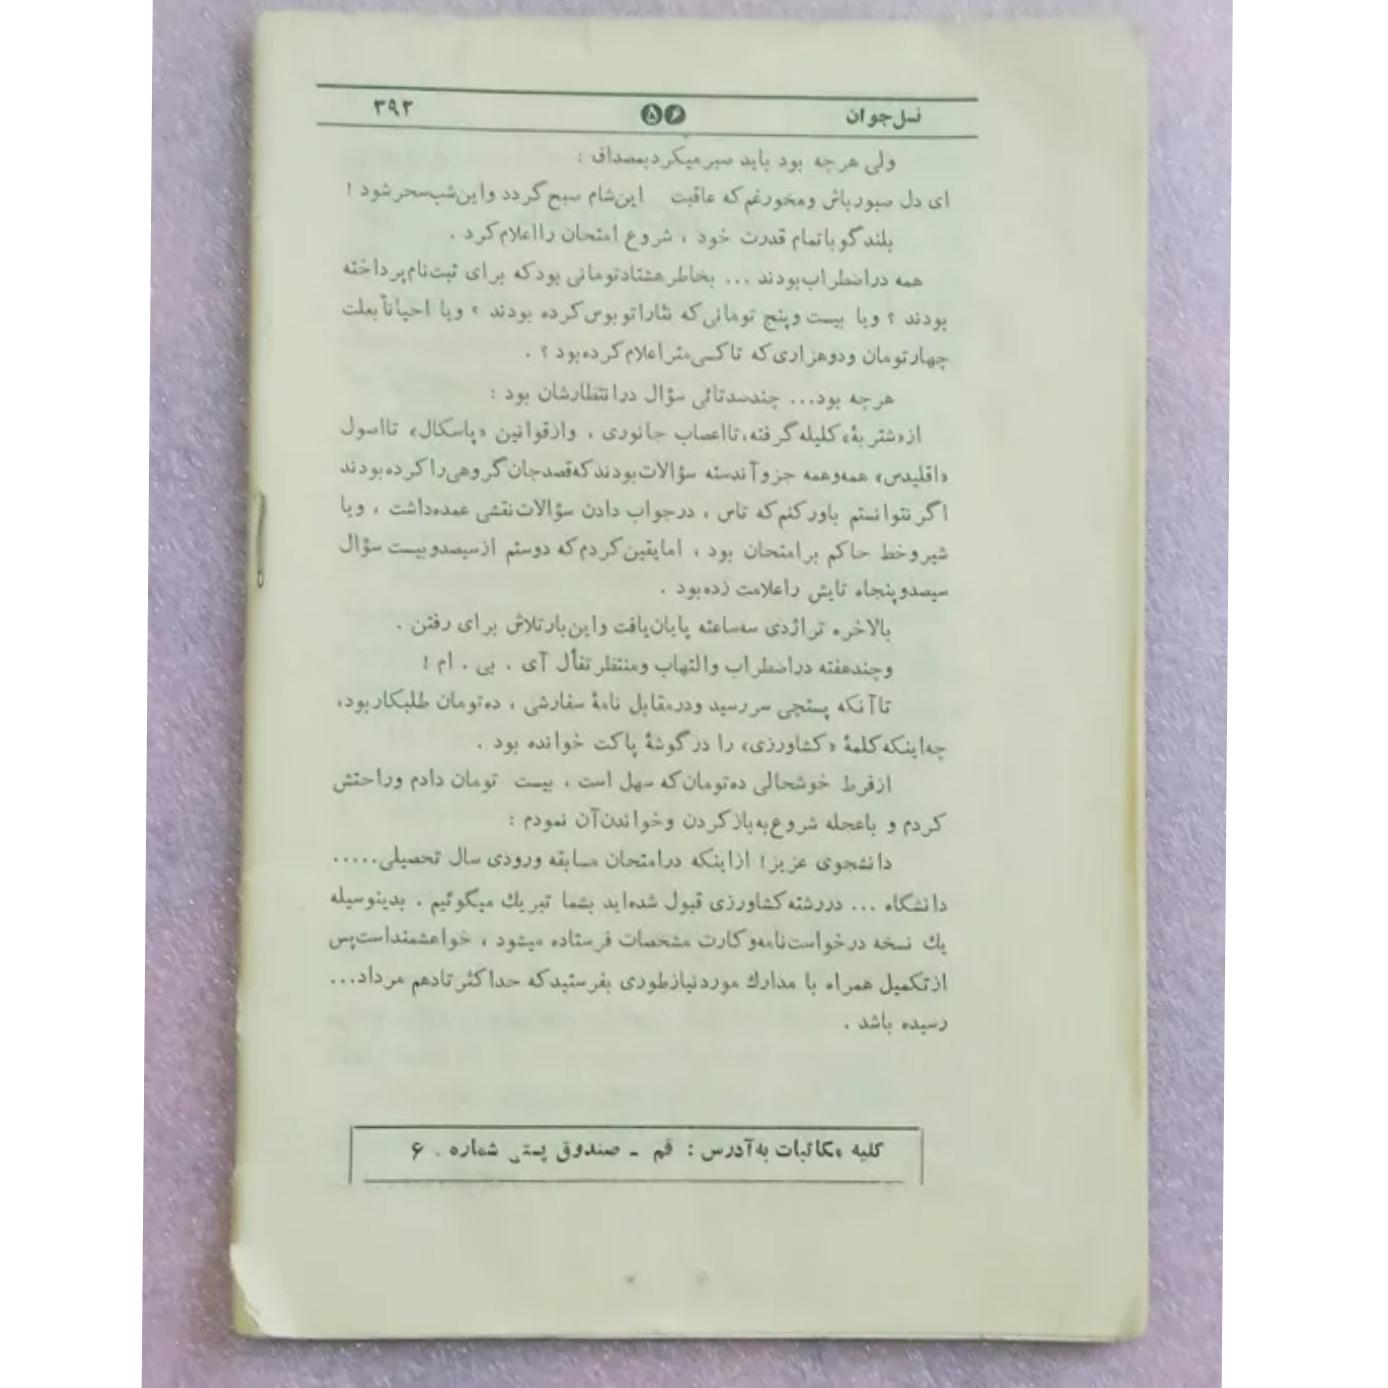 نسل جوان ۵۶ ۳۹۲
ولی هرچه بود باید صبر میکرد بمصداق :
ای دل صبور باش و مخور غم که عاقبت این شام صبح گردد و این شب سحر شود !
بلندگو با تمام قدرت خود ، شروع امتحان را اعلام کرد .
همه در اضطراب بودند ... بخاطر هشتاد تومانی بود که برای ثبت نام پرداخته
بودند ؟ ویا بیست و پنج تومانی که نثار اتوبوس کرده بودند ؟ ویا احیاناً بعلت
چهار تومان و دوهزاری که تاکسی متر اعلام کرده بود ؟ .
هرچه بود... چند صدتائی سؤال در انتظارشان بود :
از «شتربهٔ» کلیله گرفته، تا اعصاب جانوری ، و از قوانین «پاسکال» تا اصول
«اقلیدس» همه و همه جزو آندسته سؤالات بودند که قصد جان گروهی را کرده بودند
اگر نتوانستم باور کنم که تاس ، در جواب دادن سؤالات نقشی عمده داشت ، ویا
شیر و خط حاکم بر امتحان بود ، اما یقین کردم که دوستم از سیصد و بیست سؤال
سیصد و پنجاه تایش را علامت زده بود .
بالاخره تراژدی سه ساعته پایان یافت و این بار تلاش برای رفتن .
و چند هفته در اضطراب و التهاب و منتظر تفأل آی . بی . ام !
تا آنکه پستچی سر رسید و در مقابل نامهٔ سفارشی ، ده تومان طلبکار بود،
چه اینکه کلمهٔ «کشاورزی» را در گوشهٔ پاکت خوانده بود .
از فرط خوشحالی ده تومان که سهل است ، بیست تومان دادم و راحتش
کردم و با عجله شروع به باز کردن و خواندن آن نمودم :
دانشجوی عزیز! از اینکه در امتحان مسابقه ورودی سال تحصیلی.....
دانشگاه ... در رشته کشاورزی قبول شده اید بشما تبریك میگوئیم . بدینوسیله
یك نسخه درخواست نامه و کارت مشخصات فرستاده میشود ، خواهشمند است پس
از تکمیل همراه با مدارك مورد نیاز طوری بفرستید که حداکثر تا دهم مرداد...
رسیده باشد .
کلیه مکاتبات به آدرس : قم ـ صندوق پستی شماره ۶